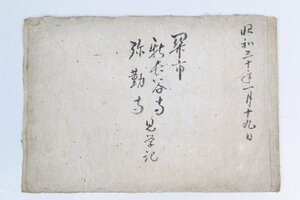 昭和三十年一月十九日
関市
新長谷寺
弥勤寺
見学記